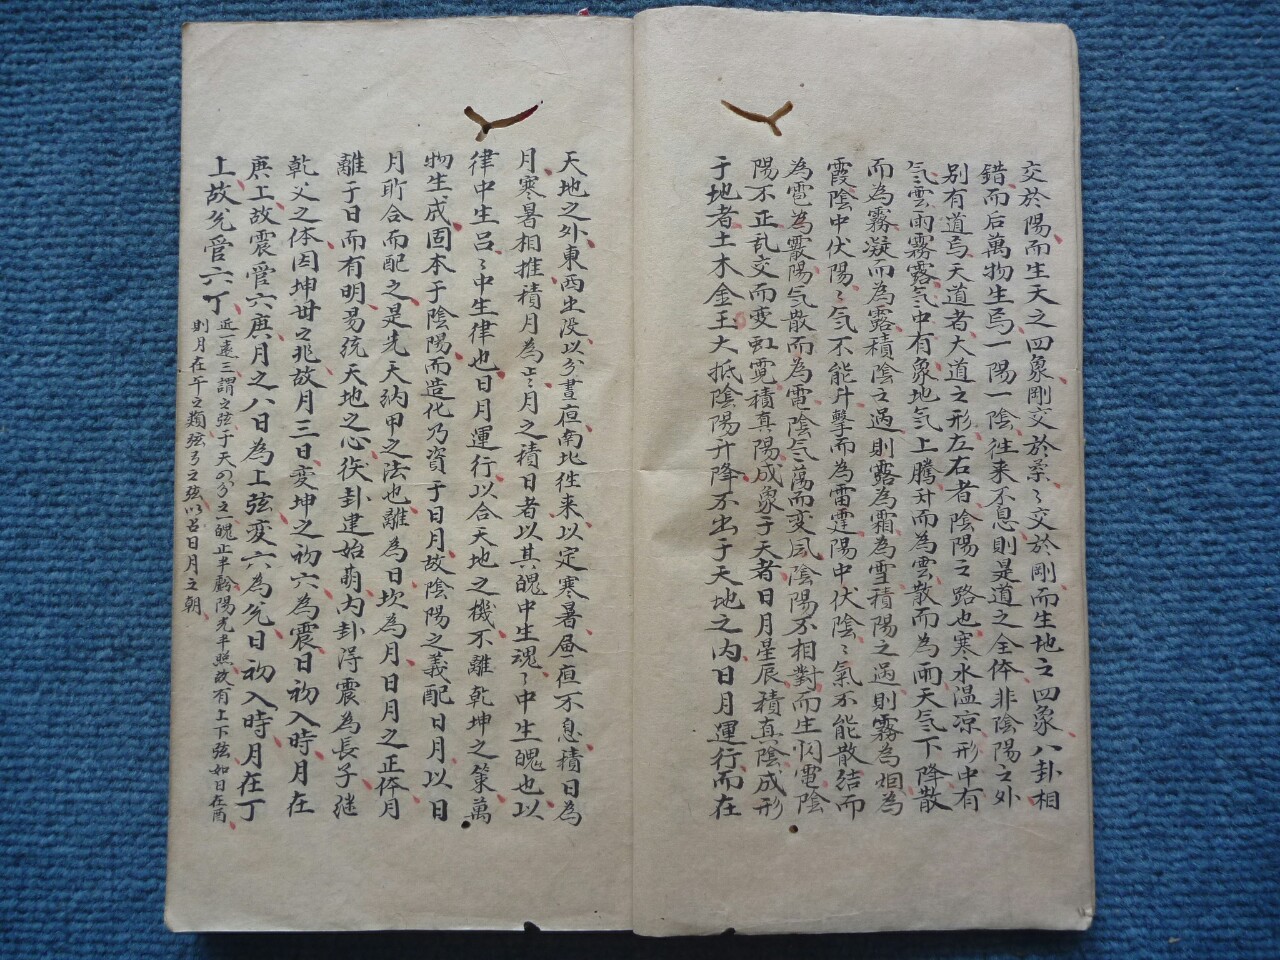 交於陽而生天之四象剛交於柔〻交於剛而生地之四象八卦相
錯而后萬物生焉一陽一陰徃来不息則是道之全体非陰陽之外
別有道焉天道者大道之形左右者陰陽之路也寒水温凉形中有
气雲雨霧露气中有象地气上騰升而為雲散而為雨天气下降散
而為霧凝而為露積陰之過則露為霜為雪積陽之過則霧為烟為
霞陰中伏陽〻气不能升擊而為雷霆陽中伏陰〻氣不能散结而
為雹為霰陽气散而為電陰气蕩而变風陰陽不相對而生闪電陰
陽不正乱交而变虹霓積真陽成象于天者日月星辰積真陰成形
于地者土木金玉大抵陰陽升降不出于天地之内日月運行而在
天地之外東西出没以分晝夜南北徃来以定寒暑昼夜不息積日為
月寒暑相推積月為𡻕〻月之積日者以其魄中生魂〻中生魄也以
律中生吕〻中生律也日月運行以合天地之機不離乾坤之策萬
物生成固本于陰陽而造化乃資于日月故陰陽之義配日月以日
月所合而配之是先天纳甲之法也離為日坎為月日月之正体月
離于日而有明易统天地之心后卦建始萌内卦得震為長子继
乾父之体因坤母之兆故月三日变坤之初六為震日初入時月在
庚上故震管六庚月之八日為上弦变六為兊日初入時月在丁
上故兊管六丁
近一遠三謂之弦于天四分之一魄正半虧陽光半照故有上下弦如日在酉
則月在午之類弦弓之弦以占日月之朝